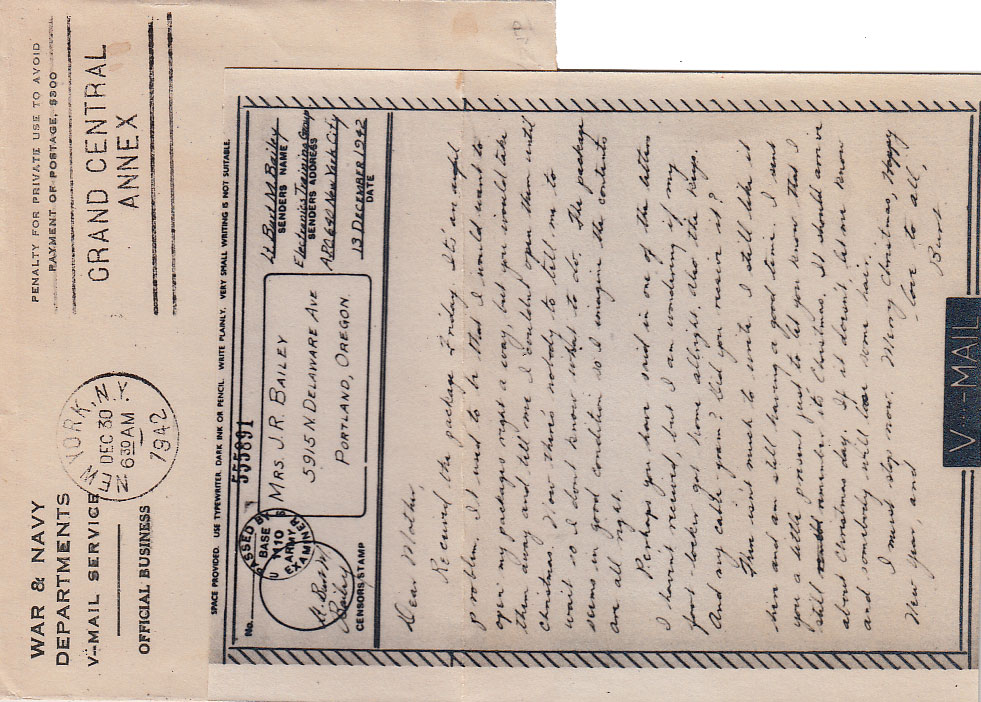 WAR & NAVY
DEPARTMENTS
V--MAIL SERVICE
OFFICIAL BUSINESS
NEW YORK, N.Y.
DEC 30
6 30 AM
1942
PENALTY FOR PRIVATE USE TO AVOID
PAYMENT OF POSTAGE, $300
GRAND CENTRAL
ANNEX
SPACE PROVIDED. USE TYPEWRITER, DARK INK OR PENCIL. WRITE PLAINLY. VERY SMALL WRITING IS NOT SUITABLE.
No.
555891
PASSED BY
BASE
1110
U S ARMY
EXAMINER
Lt Burt M
Bailey
CENSORS STAMP
MRS. J.R. BAILEY
5915 N DELAWARE AVE
PORTLAND, OREGON
Lt Burt M Bailey
SENDERS NAME
Electronics Training Group
SENDERS ADDRESS
APO 640 New York City
13 DECEMBER 1942
DATE
Dear Mother,
Received the package Friday. It's an awful
problem. It used to be that I would want to
open my packages right away, but you would take
them away and tell me I couldn't open them until
Christmas. Now there's nobody to tell me to
wait so I don't know what to do. The package
seems in good condition so I imagine the contents
are all right.
Perhaps you have said in one of the letters
I havent received, but I am wondering if my
foot-locker got home allright. Also the keys.
And my cable-gram? Did you receive it?
There isn't much to write. I still like it
here and am still having a good time. I sent
you a little present just to let you know that I
still remember it's Christmas. It should arrive
about Christmas day. If it doesn't, let me know
and somebody will lose some hair.
I must stop now. Merry Christmas, Happy
New Year, and
Love to all,
Burt
V···-MAIL